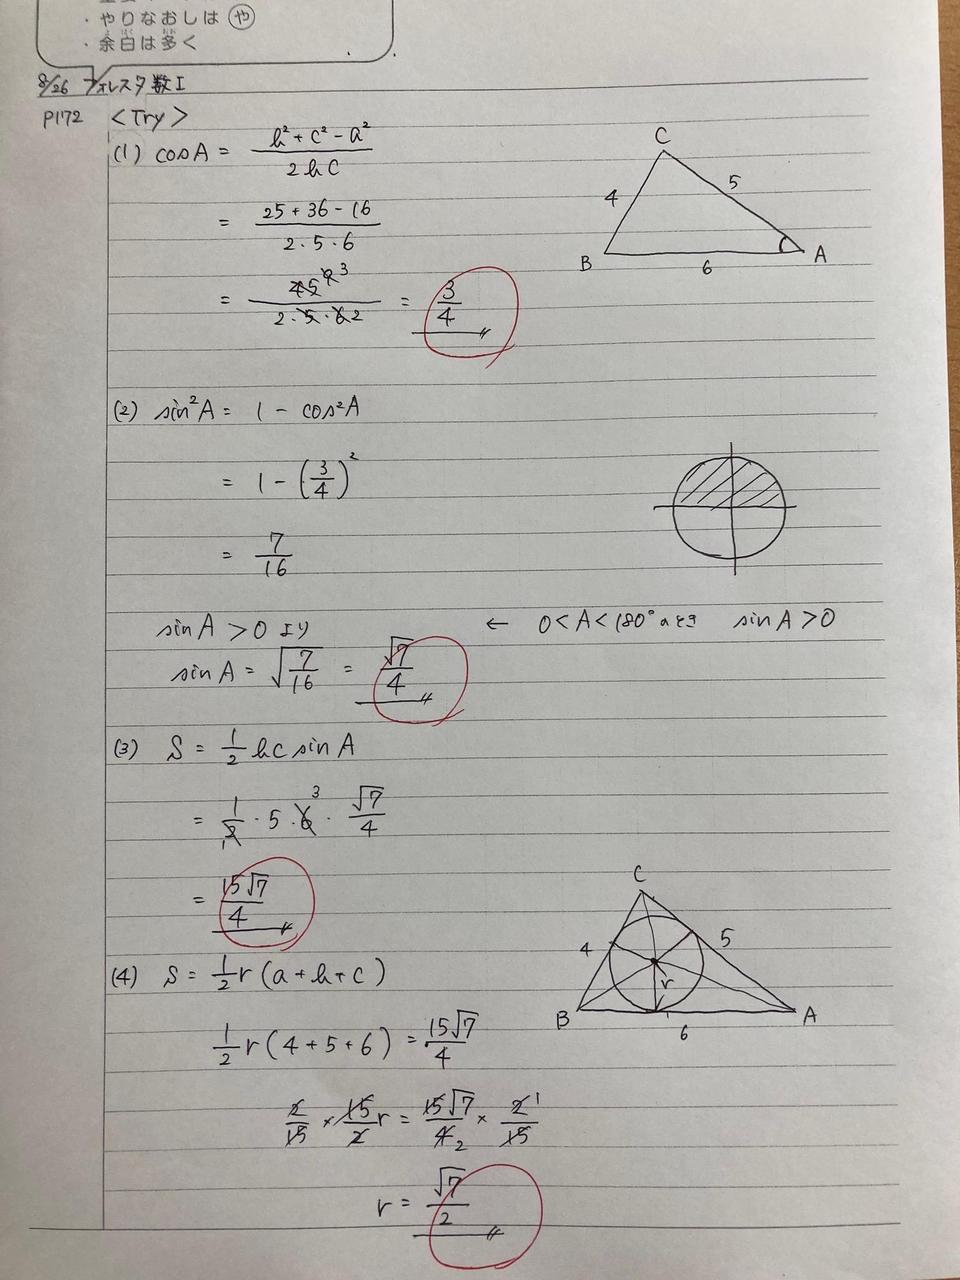 ・やりなおしは や
・余白は多く
8/26 フォレスタ数I
P172 <Try>
(1) cosA = (b² + c² - a²)/(2bc)
= (25 + 36 - 16)/(2・5・6)
= (45 9 3)/(2・5・6 2) = 3/4
C
4
5
B
6
A
(2) sin²A = 1 - cos²A
= 1 - (3/4)²
= 7/16
sinA > 0 より ← 0<A<180°のとき sinA>0
sinA = √(7/16) = √7/4
(3) S = 1/2 bc sinA
= 1/2 1・5・6 3・√7/4
= 15√7/4
(4) S = 1/2 r(a+b+c)
C
4
5
r
B
6
A
1/2 r(4+5+6) = 15√7/4
2/15 × 15/2 r = 15√7/4 2 × 2 1/15
r = √7/2